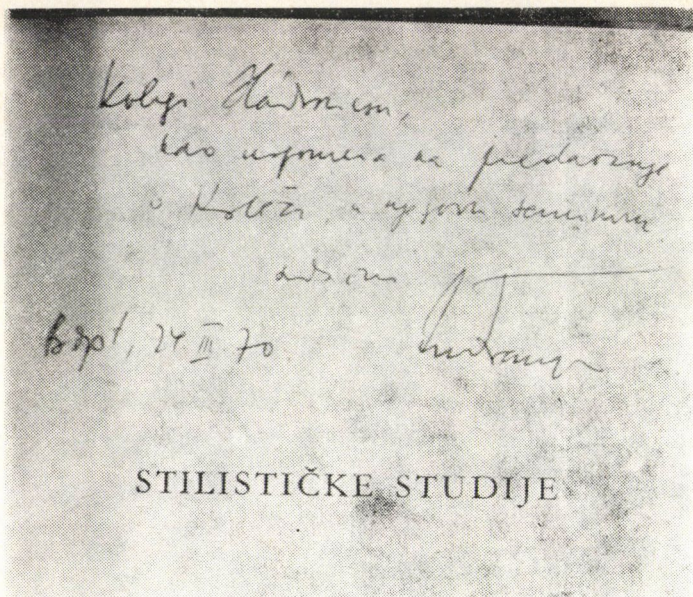 Kolegi Hádrovicsu,
kao uspomena na predavanje
o Krleži, u njegovu seminaru
Bdpt, 24 III 70
STILISTIČKE STUDIJE